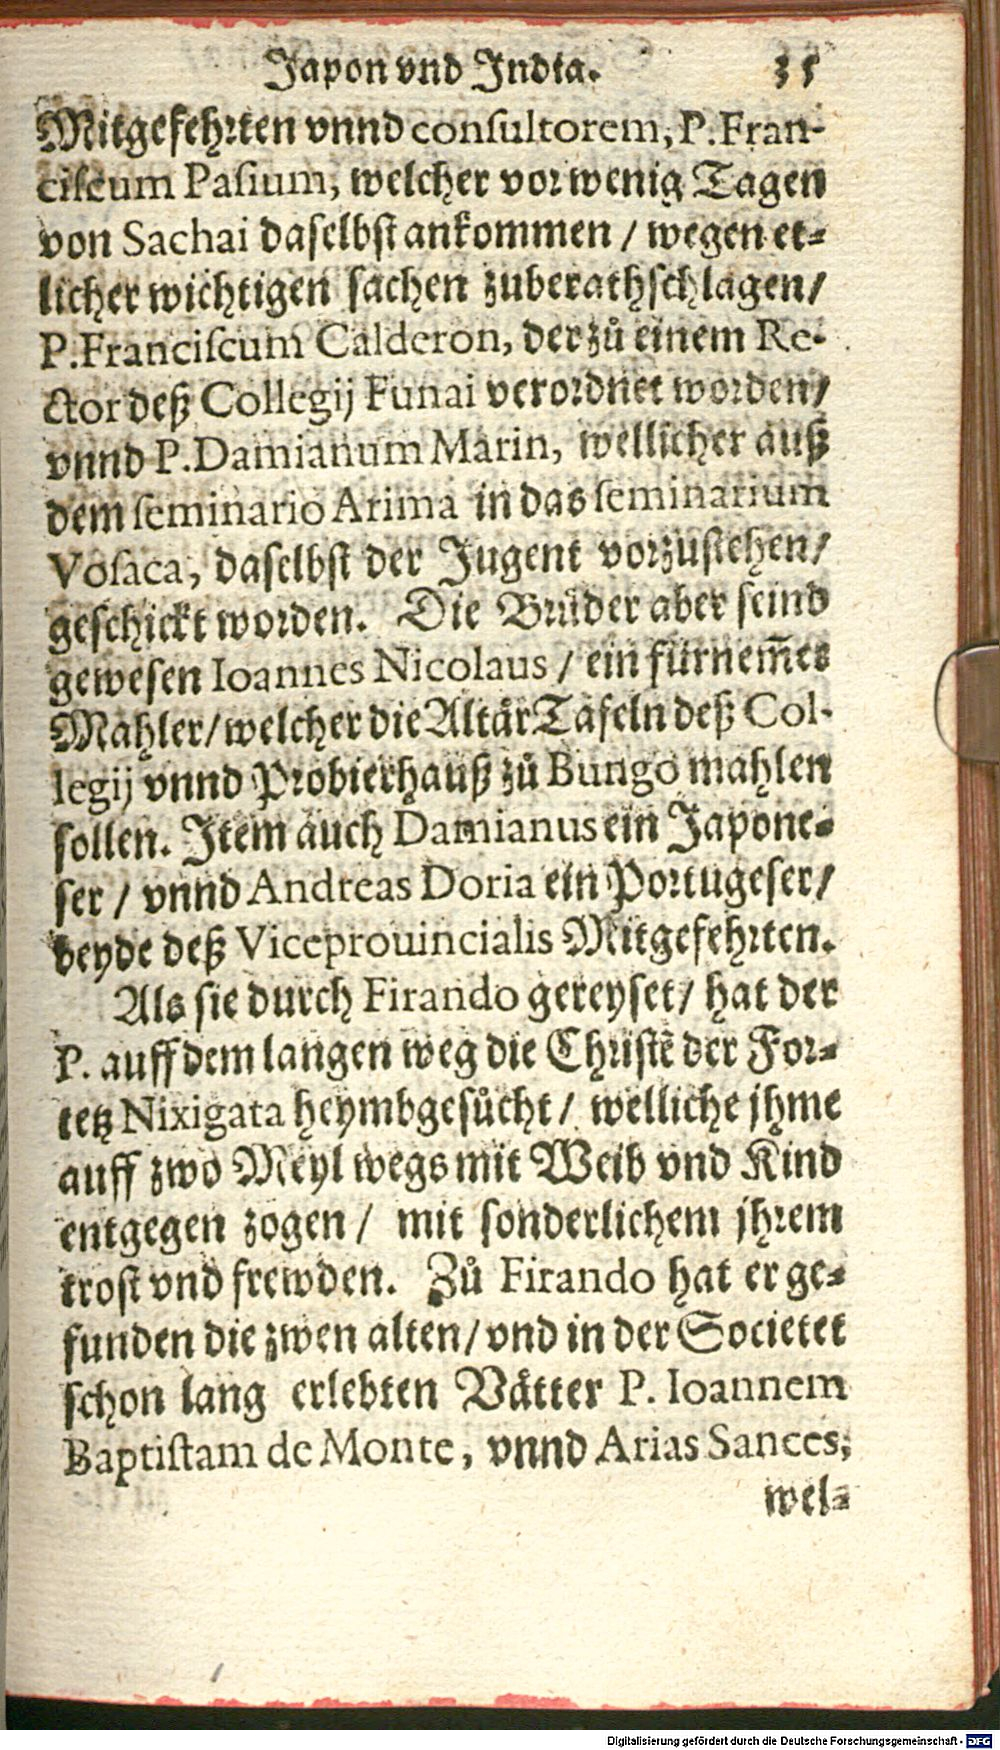 Japon vnd India. 35
Mitgefehrten vnnd conſultorem, P. Fran-
ciſcum Paſium, welcher vor wenig Tagen
von Sachai daſelbſt ankommen / wegen et-
licher wichtigen ſachen zuberathſchlagen /
P. Franciſcum Calderon, der zů einem Re-
ctor deß Collegij Funai verordnet worden /
vnnd P. Damianum Marin, wellicher auß
dem ſeminario Arima in das ſeminarium
Voſaca, daſelbſt der Jugent vorzuſtehen /
geſchickt worden. Die Brüder aber ſeind
geweſen Ioannes Nicolaus / ein fürnem̃es
Mahler / welcher die Altär Tafeln deß Col-
legij vnnd Probierhauß zů Bungo mahlen
ſollen. Item auch Damianus ein Japone-
ſer / vnnd Andreas Doria ein Portugeſer /
beyde deß Viceprouincialis Mitgefehrten.
Als ſie durch Firando gereyſet / hat der
P. auff dem langen weg die Chriſtẽ der For-
tetz Nixigata heymbgeſůcht / welliche jhme
auff zwo Meyl wegs mit Weib vnd Kind
entgegen zogen / mit ſonderlichem jhrem
troſt vnd frewden. Zů Firando hat er ge-
funden die zwen alten / vnd in der Societet
ſchon lang erlebten Vätter P. Ioannem
Baptiſtam de Monte, vnnd Arias Sances,
wel-
Digitalisierung gefördert durch die Deutsche Forschungsgemeinschaft - DFG